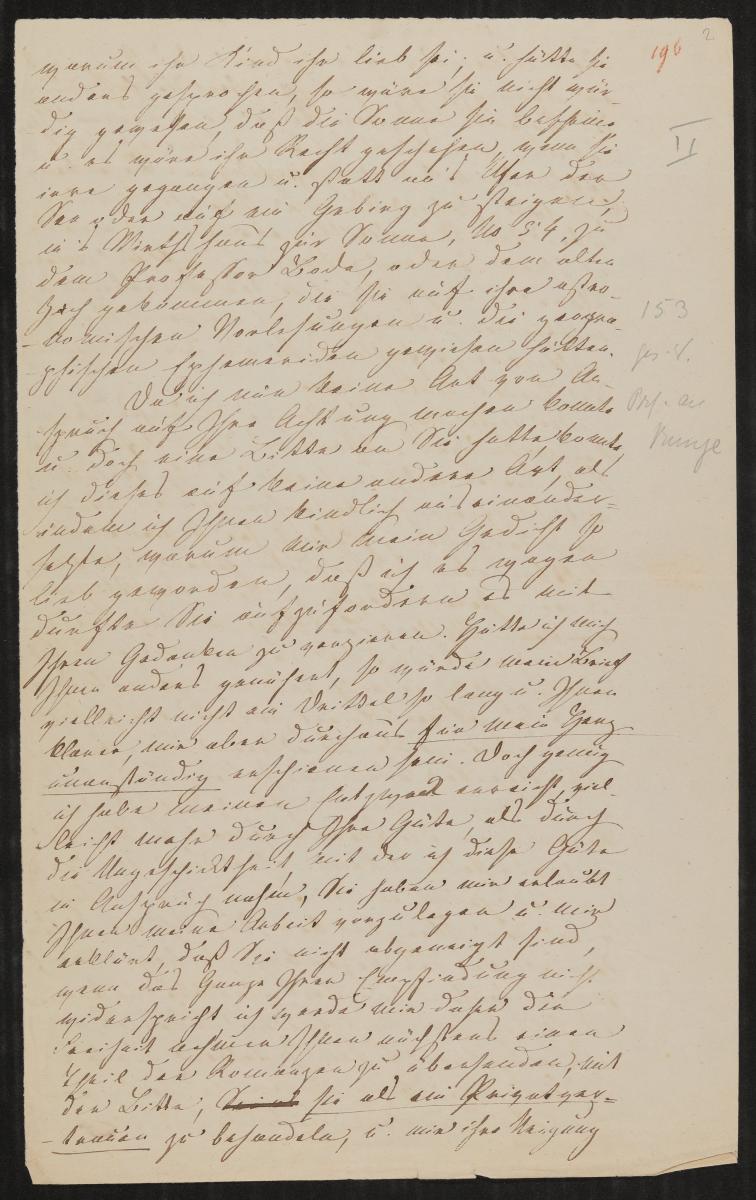 2
196
II
warum ihr Kind ihr lieb sei; u. hätte sie
anders gesprochen, so wäre sie nicht wür-
dig gewesen, daß die Sonne sie beschiene
u. es wäre ihr Recht geschehen, wenn sie
irre gegangen u. statt an's Ufer der
See oder auf ein Gebirg zu steigen,
in's Wirthshaus zur Sonne, No 54. zu
dem Professor Bode, oder dem alten
Zach gekommen, die sie auf ihre astro-
nomischen Vorlesungen u. die geogra-
phischen Ephemeriden gewiesen hätten.
Da ich nun keine Art von An-
spruch auf Ihre Achtung machen konnte
u. doch eine Bitte an Sie hatte, konnte
ich dieses auf keine andere Art, als
indem ich Ihnen kindlich auseinander-
setzte, warum mir mein Gedicht so
lieb geworden, daß ich es wagen
durfte Sie aufzufordern es mit
Ihren Gedanken zu verzieren. Hätte ich mich
Ihnen anders genähert, so würde mein Brief
vielleicht nicht ein Drittel so lang u. Ihnen
klarer, mir aber durchaus für mein Herz
unanständig erschienen sein. Doch genug
ich habe meinen Endzweck erreicht, viel-
leicht mehr durch Ihre Güte, als durch
die Ungeschicktheit, mit der ich diese Güte
in Anspruch nahm, Sie haben mir erlaubt
Ihnen meine Arbeit vorzulegen u. mir
erklärt, daß Sie nicht abgeneigt sind,
wenn das Ganze Ihrer Empfindung nicht
widerspricht ich werde mir daher die
Freiheit nehmen Ihnen nächstens einen
Theil der Romanzen zu übersenden, mit
der Bitte, sie als ein Privatver-
trauen zu behandeln, u. mir ihre Neigung
153
an
Runge